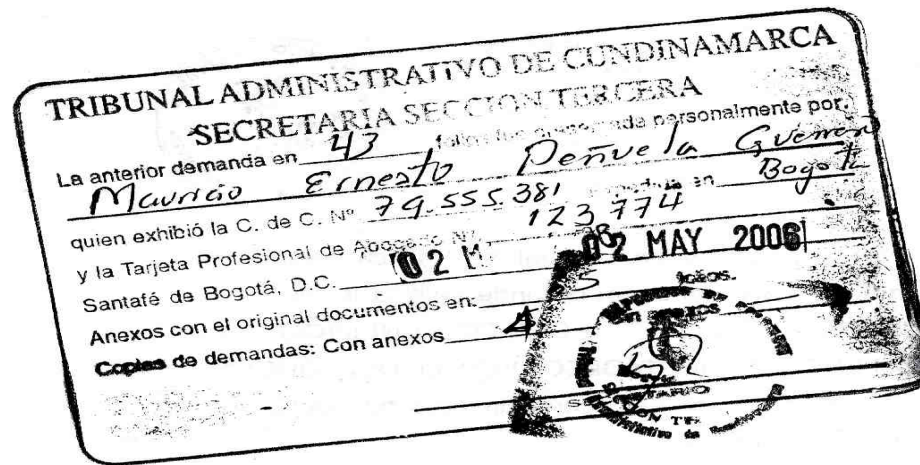 TRIBUNAL ADMINISTRATIVO DE CUNDINAMARCA
SECRETARIA SECCION TERCERA
La anterior demanda en 43 folios fue presentada personalmente por.
Mauricio Ernesto Peñuela Guerrero
quien exhibió la C. de C. Nº 79.555.381 expedida en Bogotá
y la Tarjeta Profesional de Abogado Nº 123774
Santafé de Bogotá, D.C. 02 M 02 MAY 2006
Anexos con el original documentos en: folios.
Copias de demandas: Con anexos 4 con anexos
SECRETARIO